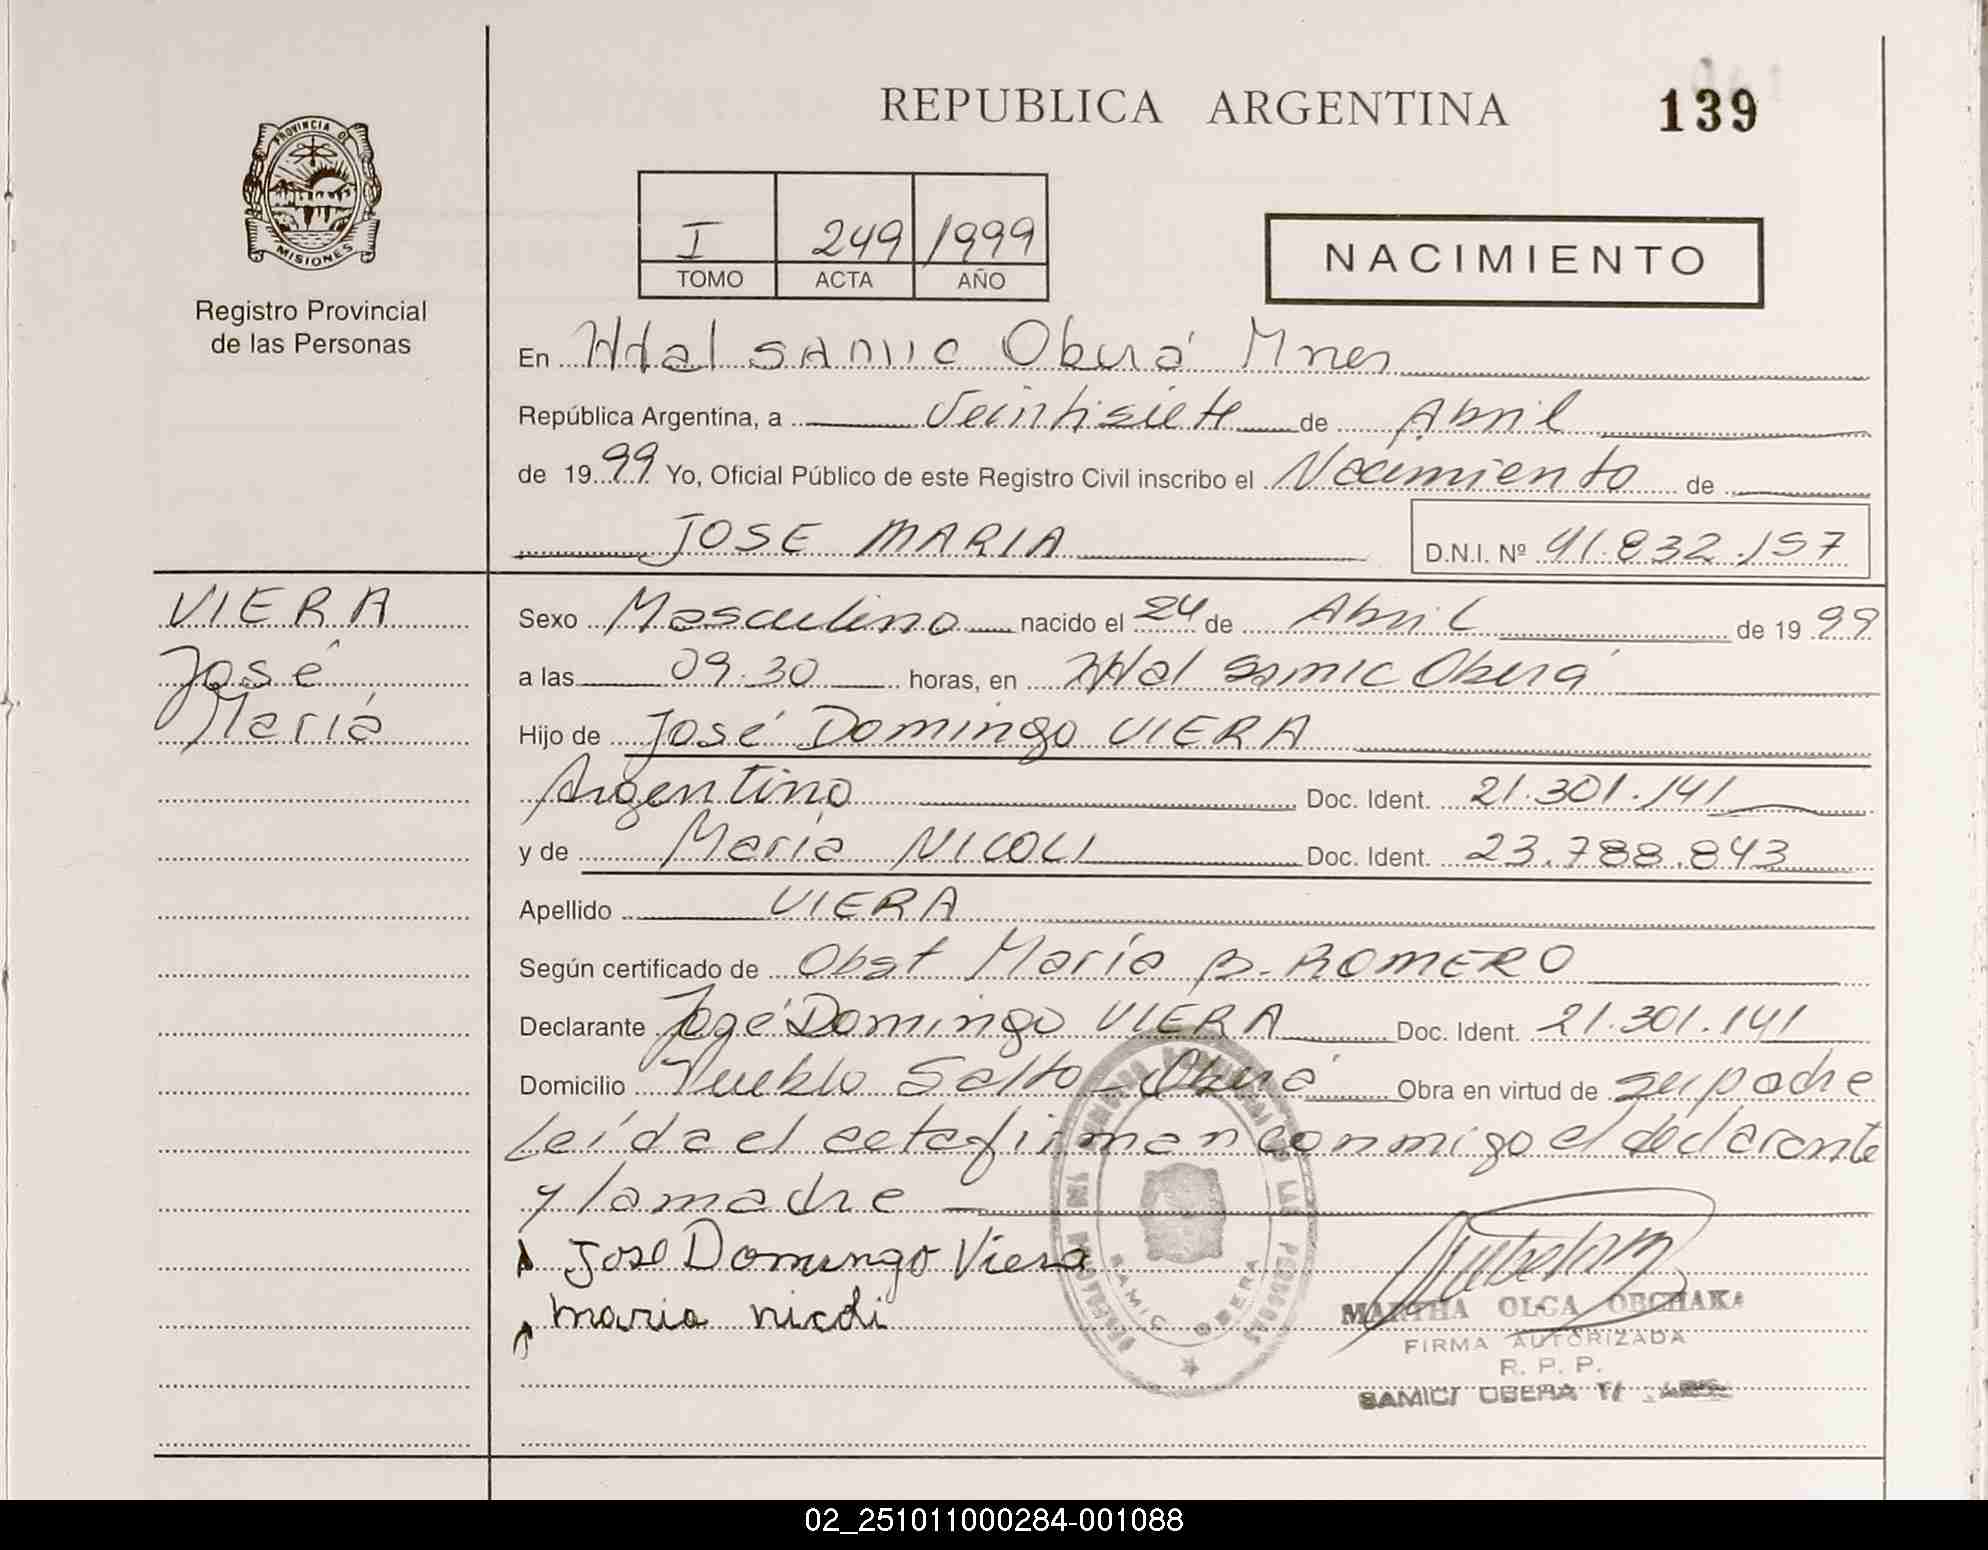 REPUBLICA ARGENTINA
139
PROVINCIA DE
MISIONES
Registro Provincial
de las Personas
I 249 1999
TOMO ACTA AÑO
NACIMIENTO
En Htal SAMIC Oberá Mnes
República Argentina, a Veintisiete de Abril
de 19 99 Yo, Oficial Público de este Registro Civil inscribo el Nacimiento de
JOSE MARIA D.N.I. Nº 41.832.157
VIERA
José
María
Sexo Masculino nacido el 24 de Abril de 19 99
a las 09.30 horas, en Htal Samic Oberá
Hijo de José Domingo VIERA
Argentino Doc. Ident. 21.301.141
y de María NICOLI Doc. Ident. 23.788.843
Apellido VIERA
Según certificado de Obst María B. ROMERO
Declarante José Domingo VIERA Doc. Ident. 21.301.141
Domicilio Pueblo Salto - Oberá Obra en virtud de su padre
Leída el acta firman conmigo el declarante
y la madre
Jose Domingo Viera
maria nicoli
SAMIC OBERA
MARTHA OLGA OBCHAKA
FIRMA AUTORIZADA
R. P. P.
SAMIC OBERA
02_251011000284-001088